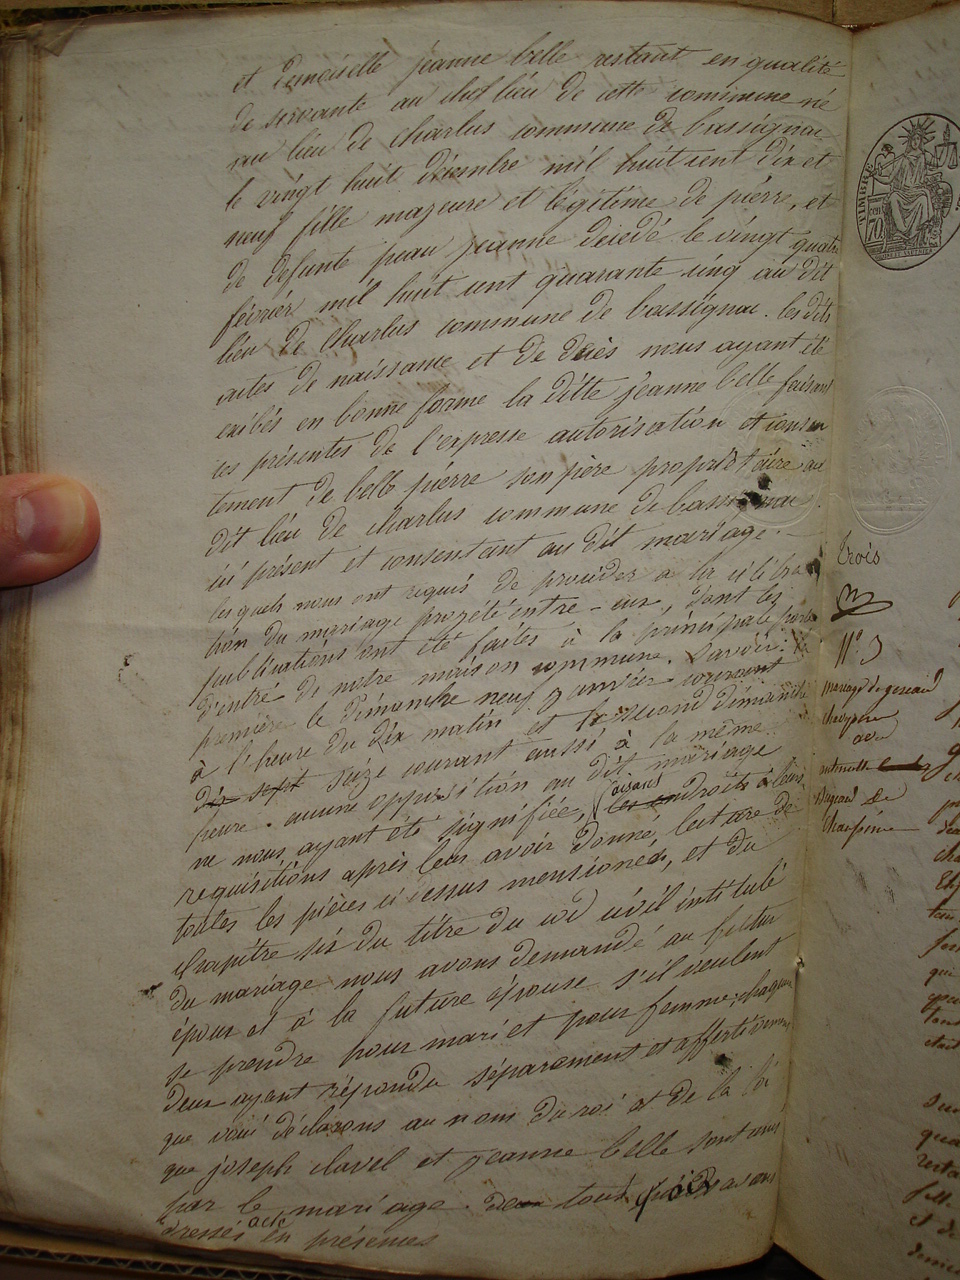 et demoiselle jeanne belle restant en qualité
de servante au chef lieu de cette commune né
au lieu de charlus commune de bassignac
le vingt huit décembre mil huit cent dix et
neuf fille majeure et légitime de piérre, et
de defunte peau jeanne décedé le vingt quatre
février mil huit cent quarante cinq au dit
lieu de charlus commune de bassignac. les dits
actes de naissance et de décès nous ayant été
exibés en bonne forme la ditte jeanne belle faisant
ces présentes de l'expresse autorisation et consen
tement de belle piérre son père propriétaire au
dit lieu de charlus commune de bassignac
ici présent et consentant au dit mariage.
lesquels nous ont requis de procéder a la célébra
tion du mariage projété entre-eux, dont les
publications ont été faites à la principale porte
d'entré de notre maison commune. savoir: la
première le dimanche neuf janvier courant
à l'heure du dix matin et le second dimanche
dix sept seize courant aussi à la même
heure. aucune opposition au dit mariage
ne nous ayant été signifiée, faisant droits à leurs
requisitions après leur avoir donné lecture de
toutes les pièces ci dessus mensionées, et du
chapitre six du titre du cod civil intitulé
du mariage nous avons demandé au futur
époux et à la future épouse s'il veulent
se prendre pour mari et pour femme, chaqun
deux ayant répondu séparement et affirtivement
que voui déclarons au nom du roi et de la loi
que joseph clavel et jeanne belle sont unis
par le mariage. de tout quoi avons
dressés acte en présences
TIMBRE
70
trois
N° 3
mariage de geraud
charpine
avec
antoinette
Dugeaud de
Charpine